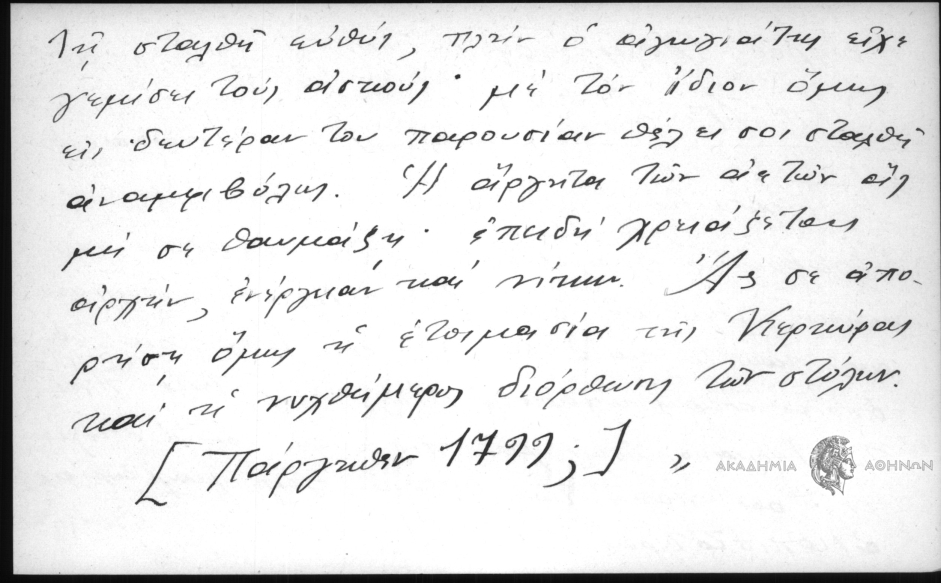 τῇ σταλθῇ εὐθύς, πλὴν ὁ ἀγωγιάτης εἶχε
γεμίσει τοὺς ἀσκούς· μὲ τὸν ἴδιον ὅμως
εἰς δευτέραν του παρουσίαν θέλει σοι σταλθῇ
ἀναμφιβόλως. Ἡ ἄργητα τῶν ἀετῶν ἂς
μή σε θαυμάξῃ· ἐπειδὴ χρειάζεται
ἀρχήν, ἐνέργειαν καὶ νίκην. Ἂς σε ἀπο-
ρήσῃ ὅμως ἡ ἑτοιμασία τῆς Κερκύρας
καὶ ἡ νυχθήμερος διόρθωσις τῶν στόλων.
[Πάργηθεν 1799;] „
ΑΚΑΔΗΜΙΑ ΑΘΗΝΩΝ